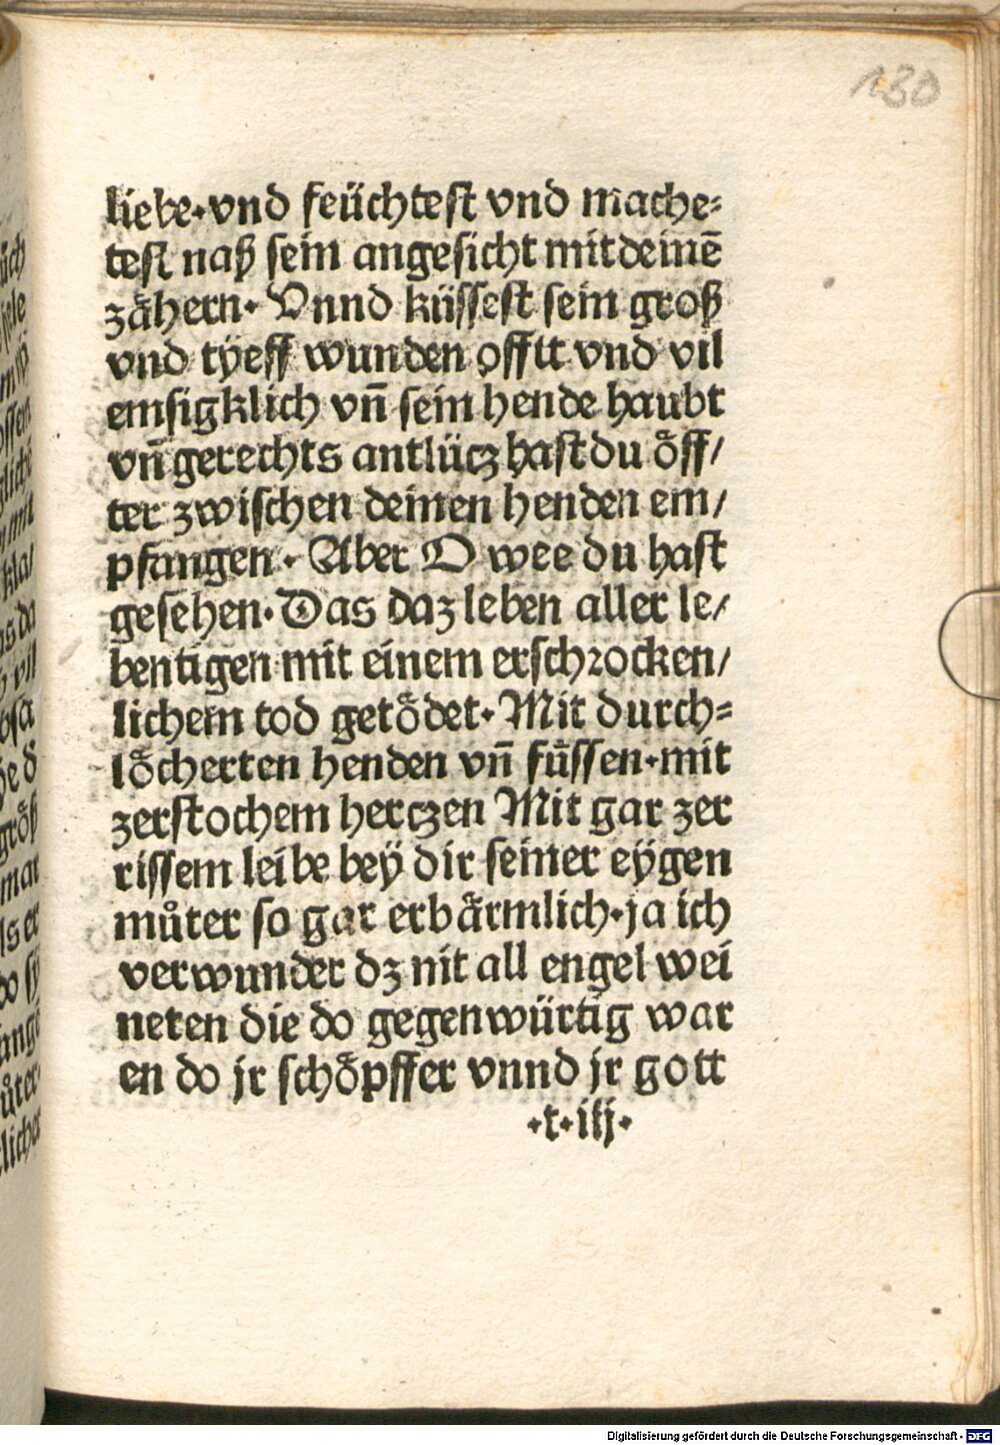 130
liebe·vnd feüchtest vnd mache⸗
test naß sein angesicht mit deinē
zåhern· Vnnd küssest sein groß
vnd tÿeff wunden offtt vnd vil
emsigklich vn̄ sein hende haubt
vn̄ gerechts antlücz hast du öff/
ter zwischen deinen henden em/
pfangen· Aber O wee du hast
gesehen· Das daz leben aller le/
bentigen mit einem erschꝛocken/
lichem tod getödet· Mit durch⸗
löcherten henden vn̄ füssen·mit
zerstochem herczen Mit gar zer
rissem leibe beÿ dir seiner eÿgen
můter so gar erbärmlich·ja ich
verwunder dz nit all engel wei
neten die do gegenwürtig war
en do jr schöpffer vnnd jr gott
·t·iij·
Digitalisierung gefördert durch die Deutsche Forschungsgemeinschaft - DFG